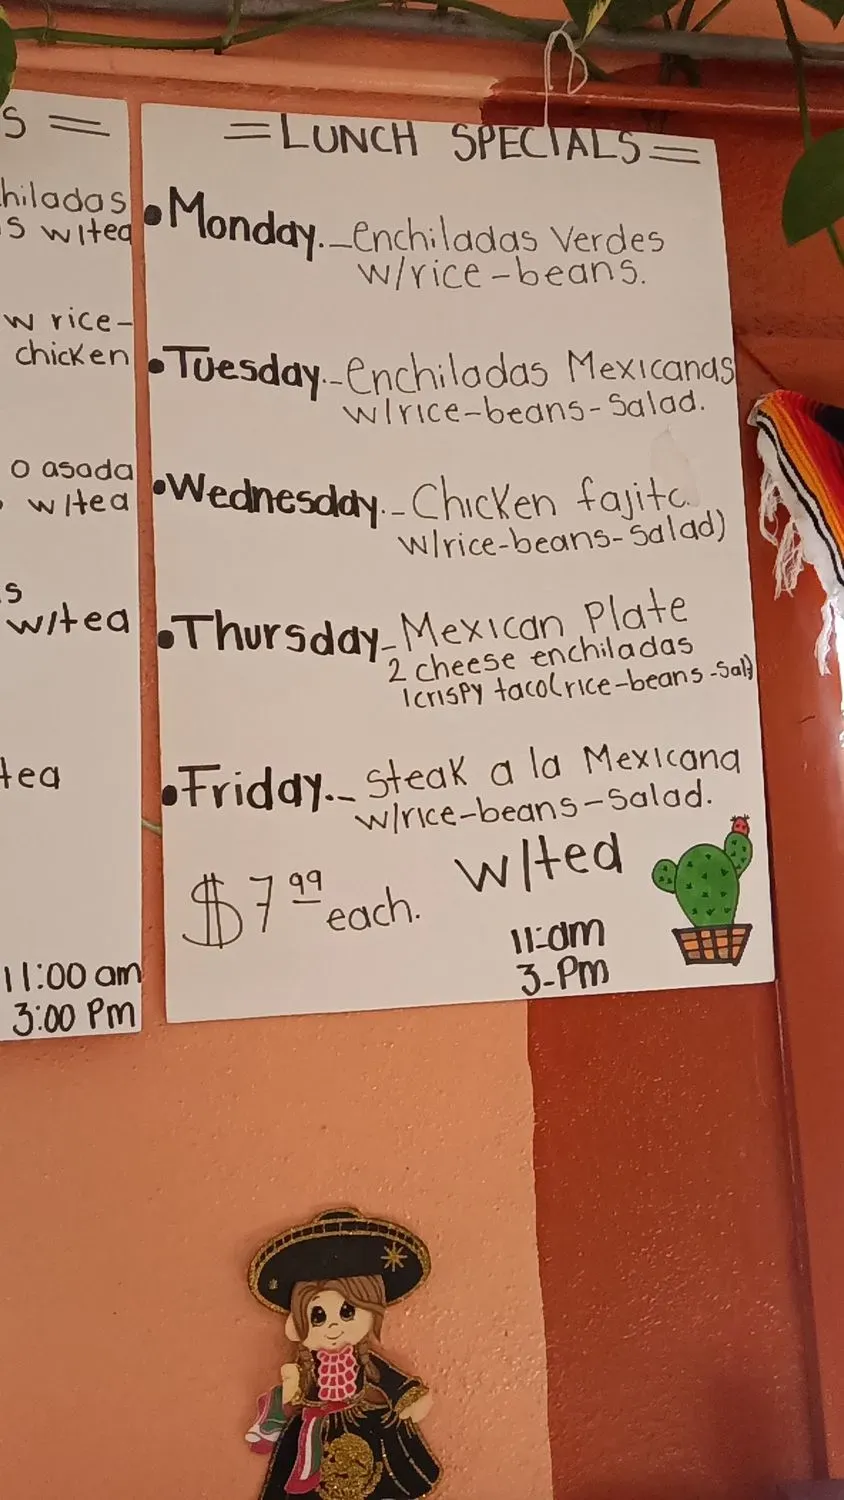 S =
hiladas
S w/tea
w rice-
chicken
o asada
w/tea
s
w/tea
tea
11:00 am
3:00 Pm
=LUNCH SPECIALS=
•Monday._enchiladas Verdes
w/rice-beans.
•Tuesday.-enchiladas Mexicanas
w/rice-beans-Salad.
•Wednesday.-Chicken fajita
w/rice-beans-Salad)
•Thursday-Mexican Plate
2 cheese enchiladas
1crispy taco(rice-beans-Sal)
•Friday._Steak a la Mexicana
w/rice-beans-Salad.
w/tea
$7.99 each.
11:am
3-Pm